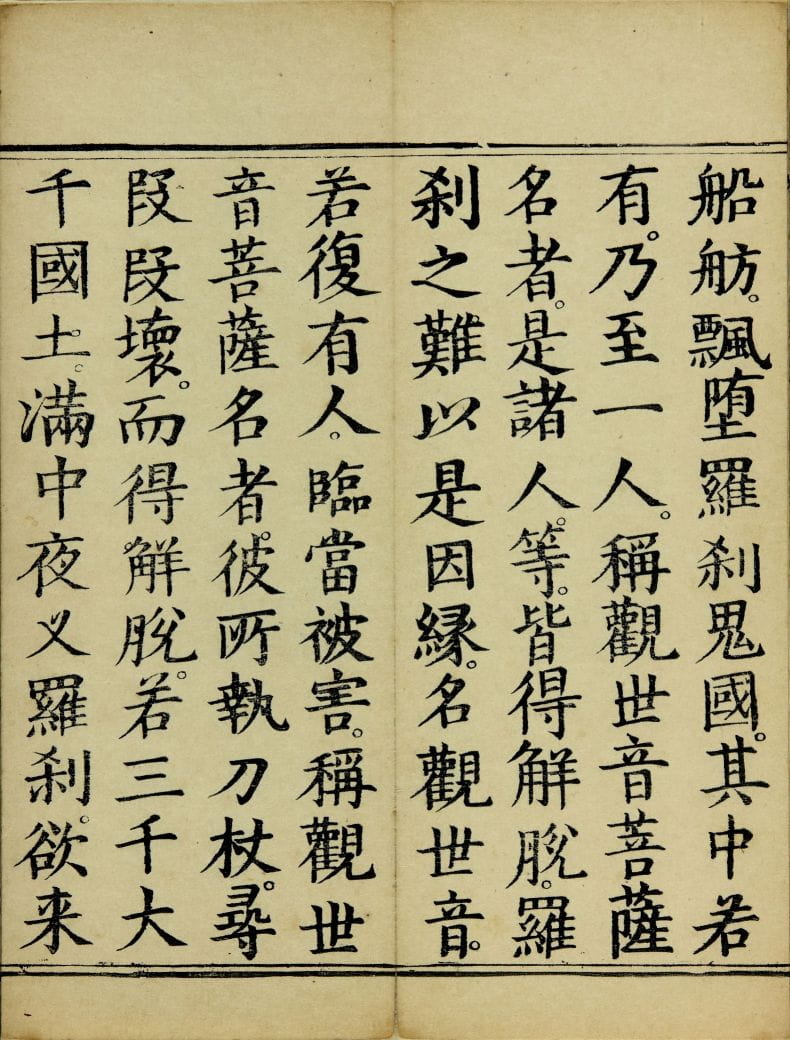 船舫。飄堕羅刹鬼國。其中若
有。乃至一人。稱觀世音菩薩
名者。是諸人。等。皆得解脫。羅
刹之難。以是因縁。名觀世音。
若復有人。臨當被害。稱觀世
音菩薩名者。彼所執刀杖。尋
段段壞。而得。解脫。若三千大
千國土。滿中夜叉羅刹。欲来